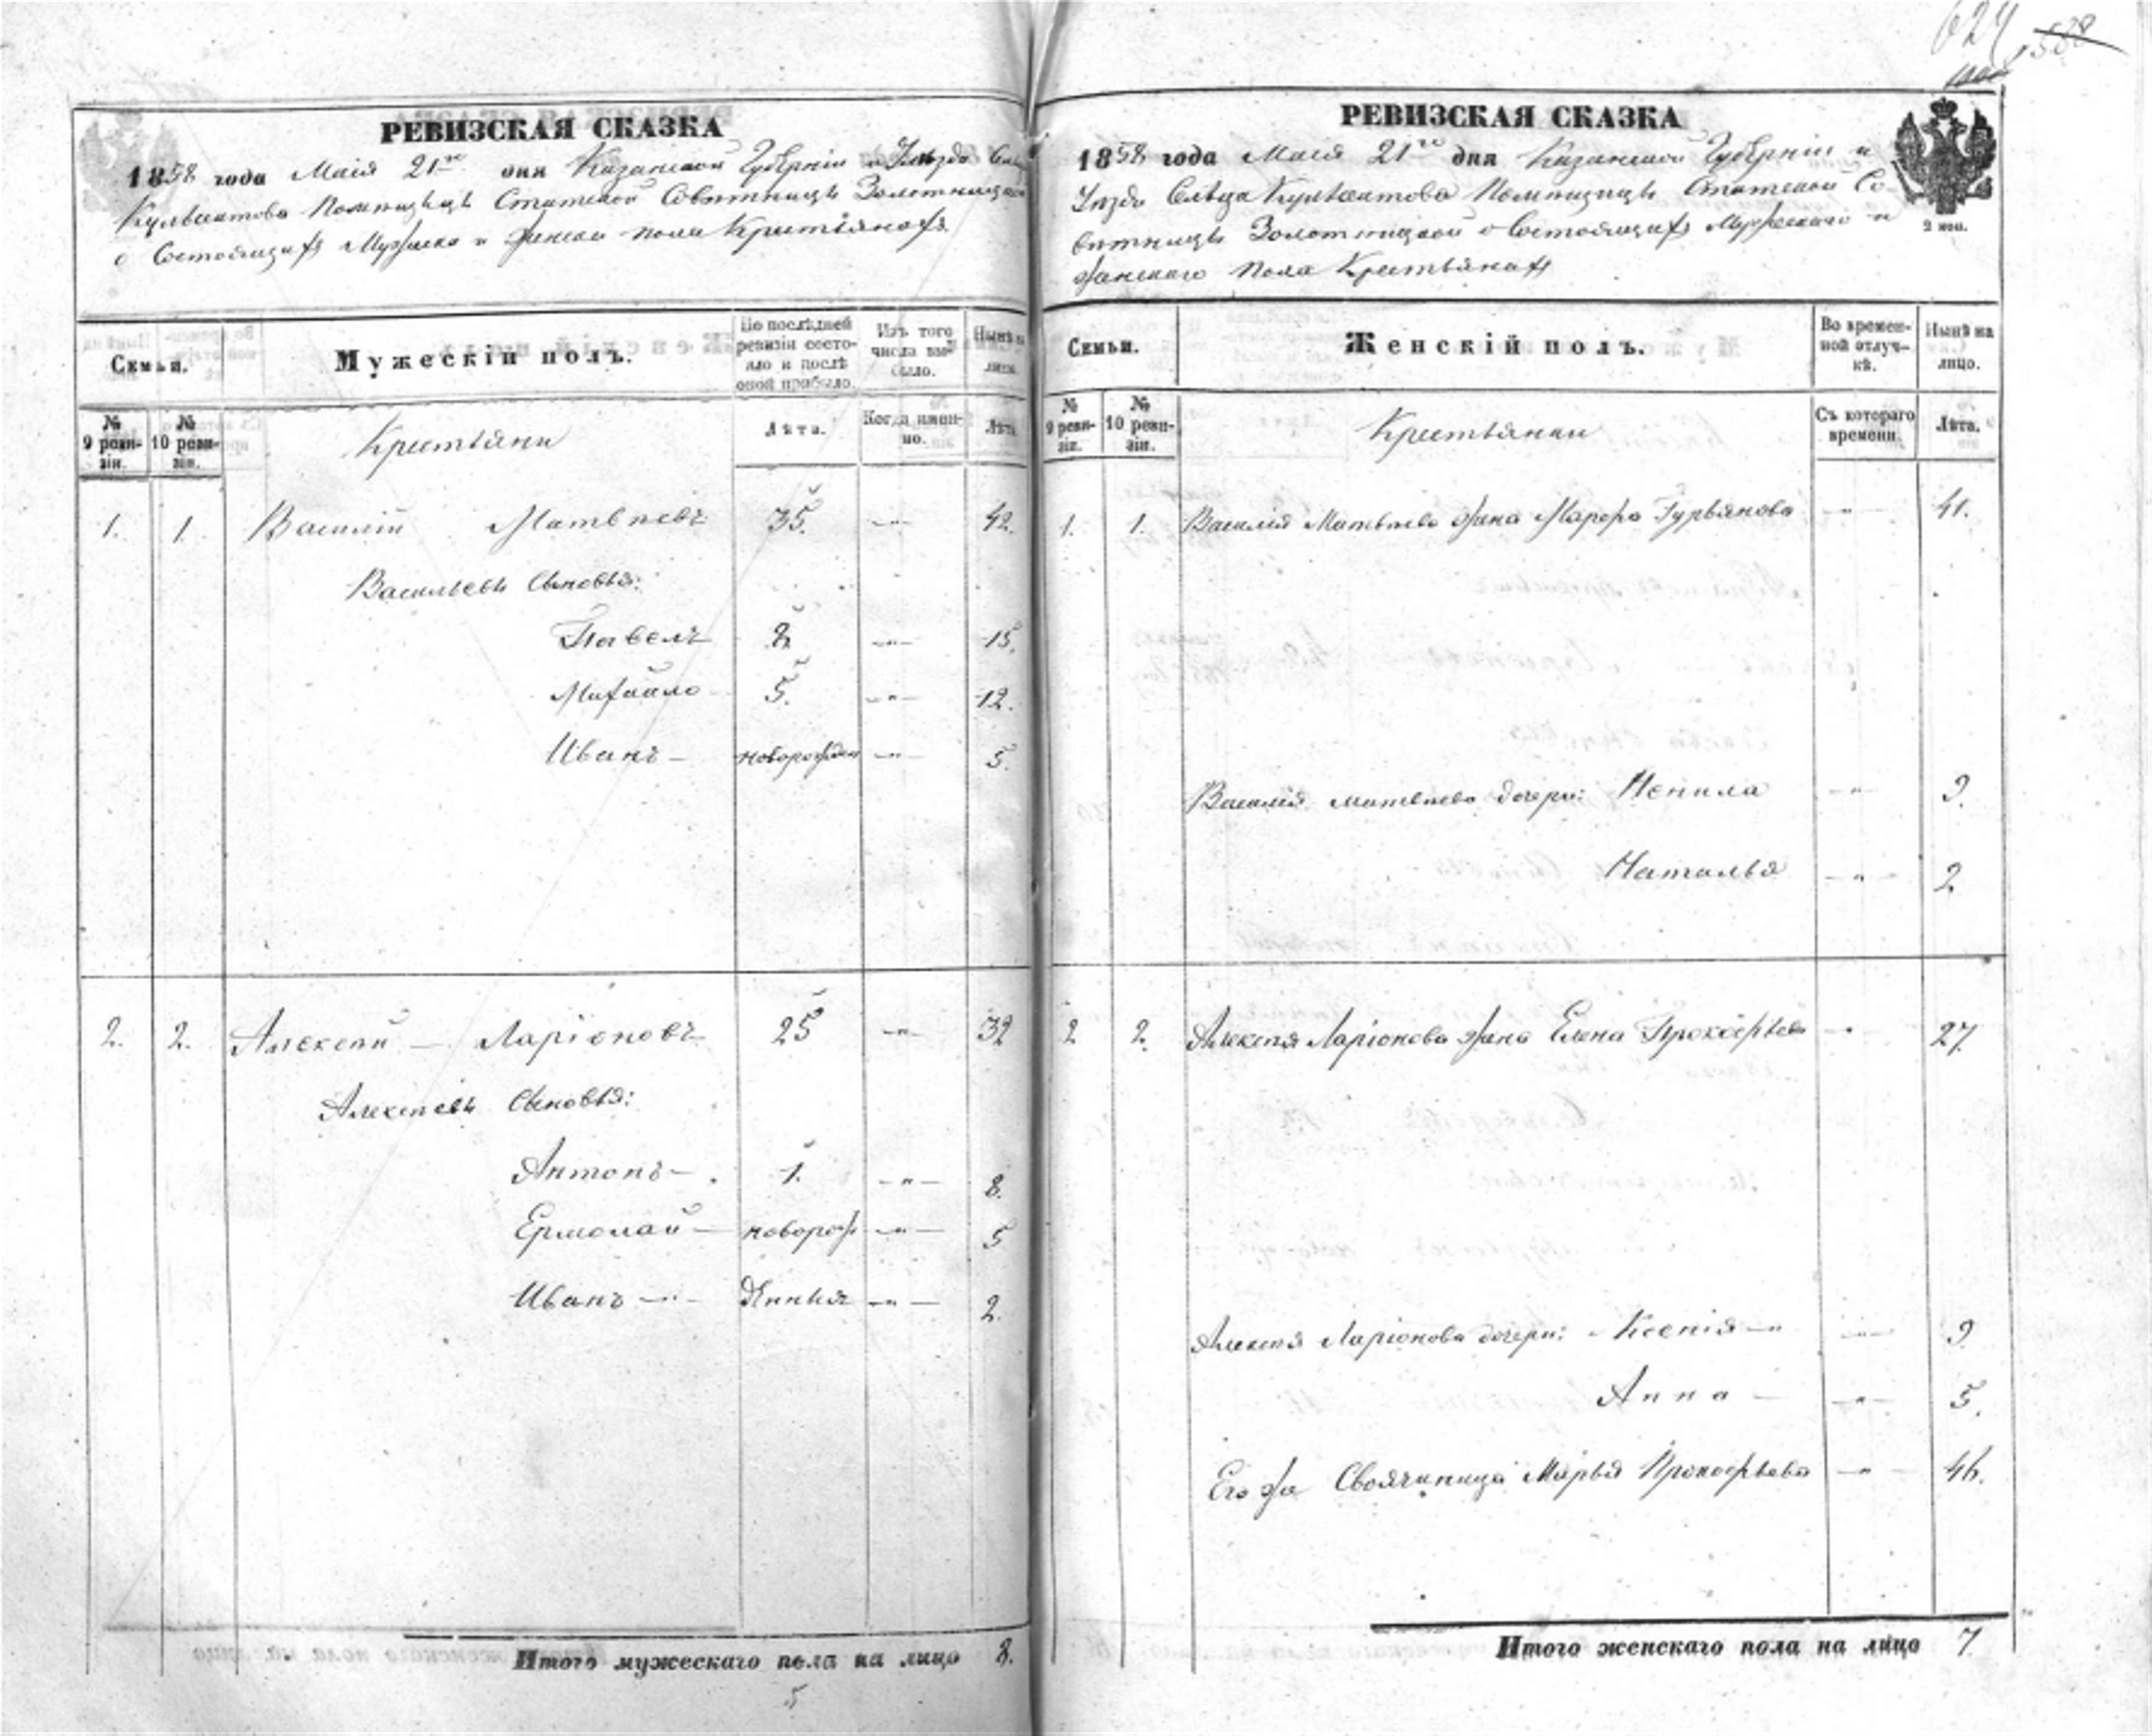 624
1588
РЕВИЗСКАЯ СКАЗКА
1858 года Маія 21го дня Казанской Губерніи и Уезда Сель
Помѣщицѣ Статской Совѣтницѣ Золотницкой
о Состоящихъ Мужеска и Женска пола Крестьянахъ
Семьи.
Мужескій полъ.
По послѣдней ревизіи состояло и послѣ оной прибыло.
Изъ того числа выбыло.
Нынѣ на лицо.
№ 9 ревизіи.
№ 10 ревизіи.
Крестьяни
Лѣта.
Когда именно.
Лѣта.
1. 1. Василій Матвѣевъ 35. —"— 42.
Васильевы Сыновья:
Павелъ 8 —"— 15.
Михайло 5. —"— 12.
Иванъ — новорожден —"— 5.
2. 2. Алексѣй — Ларіоновъ 25 —"— 32
Алексѣевы Сыновья:
Антонъ — 1. —"— 8.
Ермолай — новорож —"— 5
Иванъ —"— денныя —"— 2.
Итого мужескаго пола на лицо 8.
5
РЕВИЗСКАЯ СКАЗКА
2 коп.
1858 года Маія 21го дня Казанской Губерніи и
Уезда Сельца Помѣщицѣ Статской Со-
вѣтницѣ Золотницкой о Состоящихъ Мужескаго и
женскаго Пола Крестьянахъ
Семьи.
Женскій полъ.
Во временной отлучкѣ.
Нынѣ на лицо.
№ 9 ревизіи.
№ 10 ревизіи.
Крестьянки
Съ котораго времени.
Лѣта.
1. 1. Василія Матвѣева жена Марфа Гурьянова —"— 41.
Василія матвѣева дочери: Ненила —"— 9.
Наталья —"— 2
2 2. Алексѣя Ларіонова жена Елена Прокофьева —"— 27.
Алексѣя Ларіонова дочери: Ксенія —"— —"— 9
Анна — —"— 5.
Его же Свояченица Марья Прокофьева —"— 46.
Итого женскаго пола на лицо 7